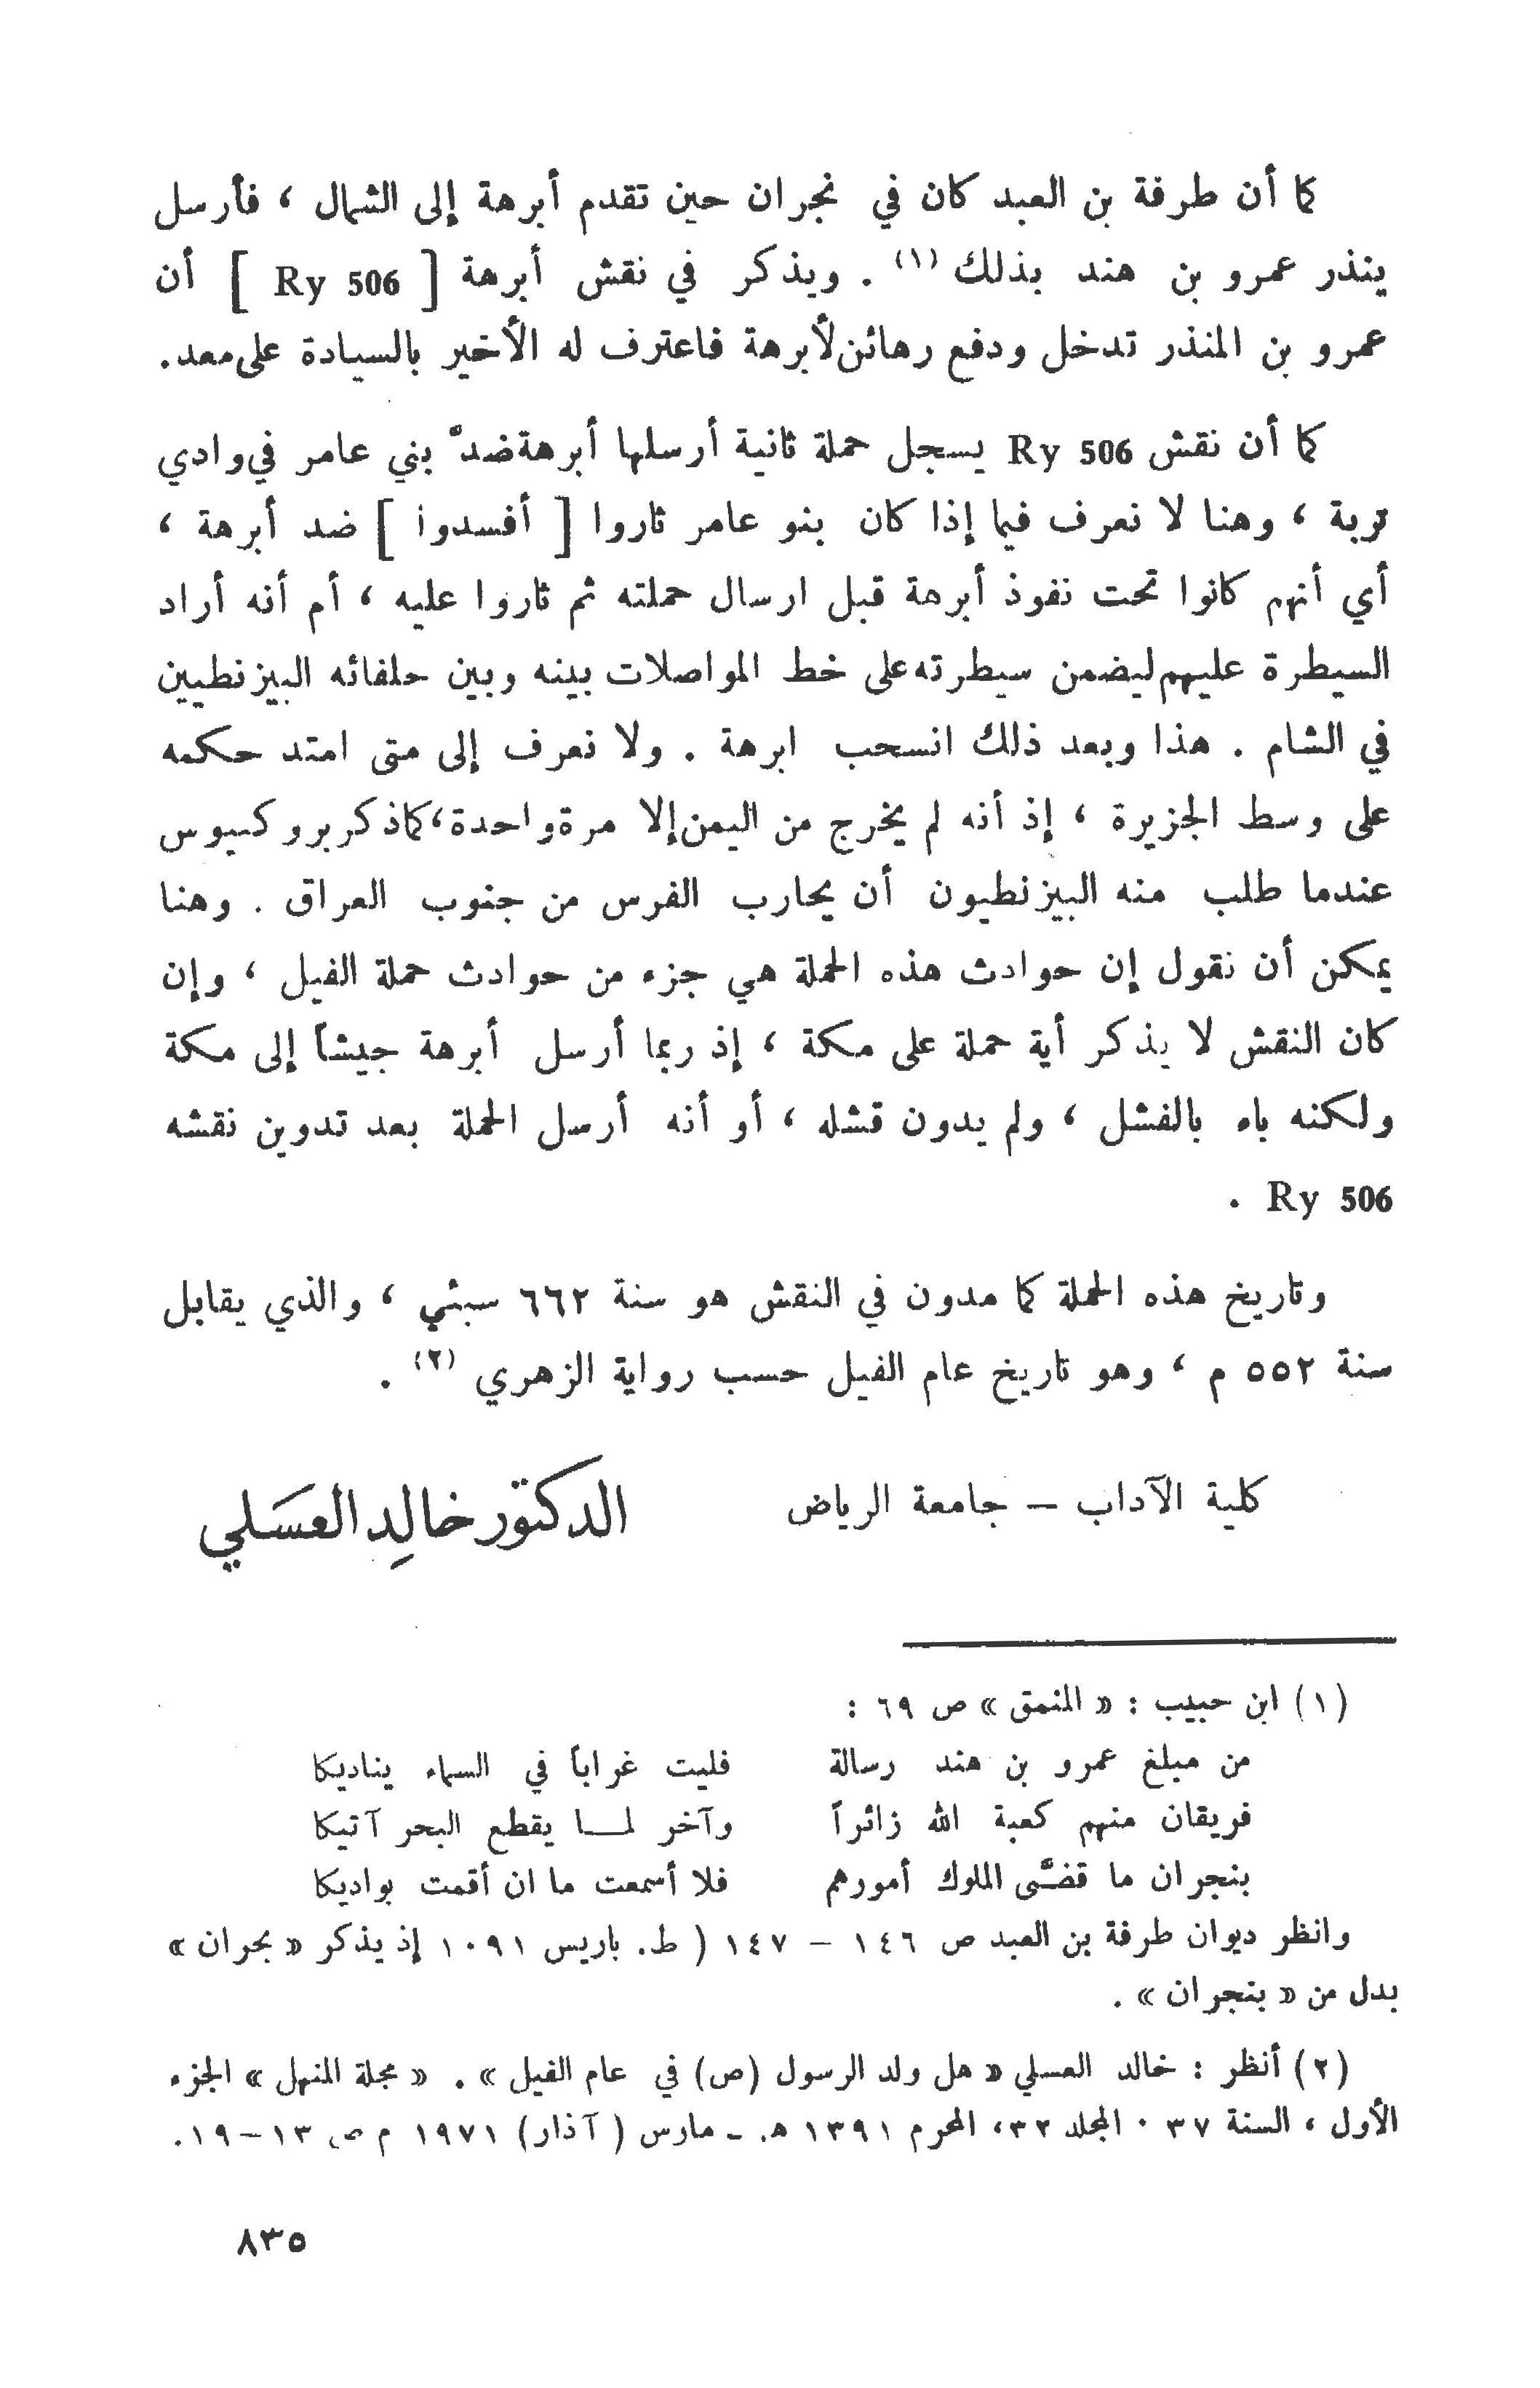 كما أن طرفة بن العبد كان في نجران حين تقدم أبرهة إلى الشمال ، فأرسل
ينذر عمرو بن هند بذلك (١) . ويذكر في نقش أبرهة [ Ry 506 ] أن
عمرو بن المنذر تدخل ودفع رهائن لأبرهة فاعترف له الأخير بالسيادة على معد.
كما أن نقش Ry 506 يسجل حملة ثانية أرسلها أبرهة ضدّ بني عامر في وادي
تربة ، وهنا لا نعرف فيما إذا كان بنو عامر ثاروا [ أفسدوا ] ضد أبرهة ،
أي أنهم كانوا تحت نفوذ أبرهة قبل ارسال حملته ثم ثاروا عليه ، أم أنه أراد
السيطرة عليهم ليضمن سيطرته على خط المواصلات بينه وبين حلفائه البيزنطيين
في الشام . هذا وبعد ذلك انسحب ابرهة . ولا نعرف إلى متى امتد حكمه
على وسط الجزيرة ، إذ أنه لم يخرج من اليمن إلا مرة واحدة ، كما ذكر بروكبيوس
عندما طلب منه البيزنطيون أن يحارب الفرس من جنوب العراق . وهنا
يمكن أن نقول إن حوادث هذه الحملة هي جزء من حوادث حملة الفيل ، وإن
كان النقش لا يذكر أية حملة على مكة ، إذ ربما أرسل أبرهة جيشاً إلى مكة
ولكنه باء بالفشل ، ولم يدون قشله ، أو أنه أرسل الحملة بعد تدوين نقشه
Ry 506 .
وتاريخ هذه الحملة كما مدون في النقش هو سنة ٦٦٢ سبئي ، والذي يقابل
سنة ٥٥٢ م ، وهو تاريخ عام الفيل حسب رواية الزهري (٢) .
كلية الآداب – جامعة الرياض الدكتور خالِد العسَلي
(١) ابن حبيب : « المنمق » ص ٦٩ :
من مبلغ عمرو بن هند رسالة فليت غراباً في السماء يناديكا
فريقان منهم كعبة الله زائراً وآخر لمـــا يقطع البحر آتيكا
بنجران ما قضَّى الملوك أمورهم فلا أسمعت ما ان أقمت بواديكا
وانظر ديوان طرفة بن العبد ص ١٤٦ – ١٤٧ ( ط. باريس ١٠٩١ إذ يذكر « بحران »
بدل من « بنجران » .
(٢) أنظر : خالد العسلي « هل ولد الرسول (ص) في عام الفيل » . « مجلة المنهل » الجزء
الأول ، السنة ٣٧ ٠ المجلد ٣٢، المحرم ١٣٩١ هـ. - مارس ( آذار) ١٩٧١ م ص ١٣–١٩.
٨٣٥